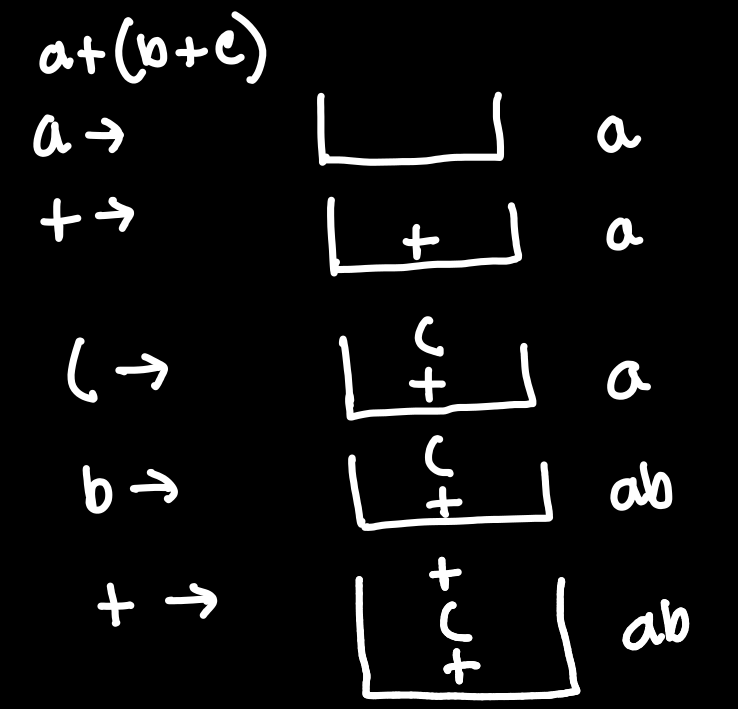 a+(b+c)
a → a
+ → + a
( → ( + a
b → ( + ab
+ → + ( + ab